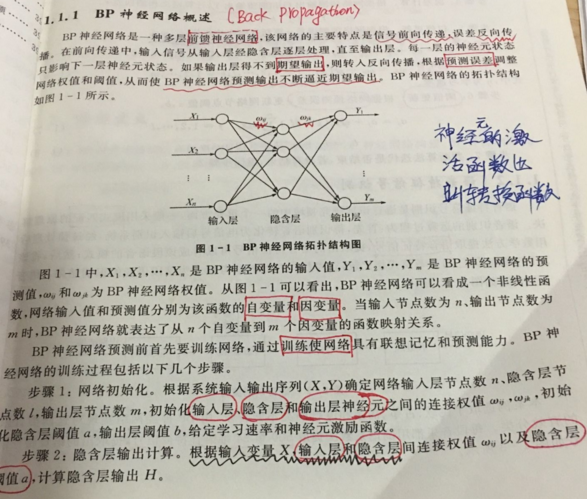 1.1.1 BP 神经网络概述 (Back Propagation)
BP 神经网络是一种多层前馈神经网络,该网络的主要特点是信号前向传递,误差反向传
播。在前向传递中,输入信号从输入层经隐含层逐层处理,直至输出层。每一层的神经元状态
只影响下一层神经元状态。如果输出层得不到期望输出,则转入反向传播,根据预测误差调整
网络权值和阈值,从而使 BP 神经网络预测输出不断逼近期望输出。BP 神经网络的拓扑结构
如图 1-1 所示。
X₁ ωᵢⱼ ωⱼₖ Y₁
X₂
⋮ ⋮
Xₙ Yₘ
输入层 隐含层 输出层
神经元的激
活函数也
叫转换函数
图 1-1 BP 神经网络拓扑结构图
图 1-1 中,X₁,X₂,…,Xₙ 是 BP 神经网络的输入值,Y₁,Y₂,…,Yₘ 是 BP 神经网络的预
测值,ωᵢⱼ 和 ωⱼₖ 为 BP 神经网络权值。从图 1-1 可以看出,BP 神经网络可以看成一个非线性函
数,网络输入值和预测值分别为该函数的自变量和因变量。当输入节点数为 n,输出节点数为
m 时,BP 神经网络就表达了从 n 个自变量到 m 个因变量的函数映射关系。
BP 神经网络预测前首先要训练网络,通过训练使网络具有联想记忆和预测能力。BP 神
经网络的训练过程包括以下几个步骤。
步骤 1:网络初始化。根据系统输入输出序列(X,Y)确定网络输入层节点数 n、隐含层节
点数 l,输出层节点数 m,初始化输入层、隐含层和输出层神经元之间的连接权值 ωᵢⱼ,ωⱼₖ,初始
化隐含层阈值 a,输出层阈值 b,给定学习速率和神经元激励函数。
步骤 2:隐含层输出计算。根据输入变量 X,输入层和隐含层间连接权值 ωᵢⱼ 以及隐含层
阈值 a,计算隐含层输出 H。